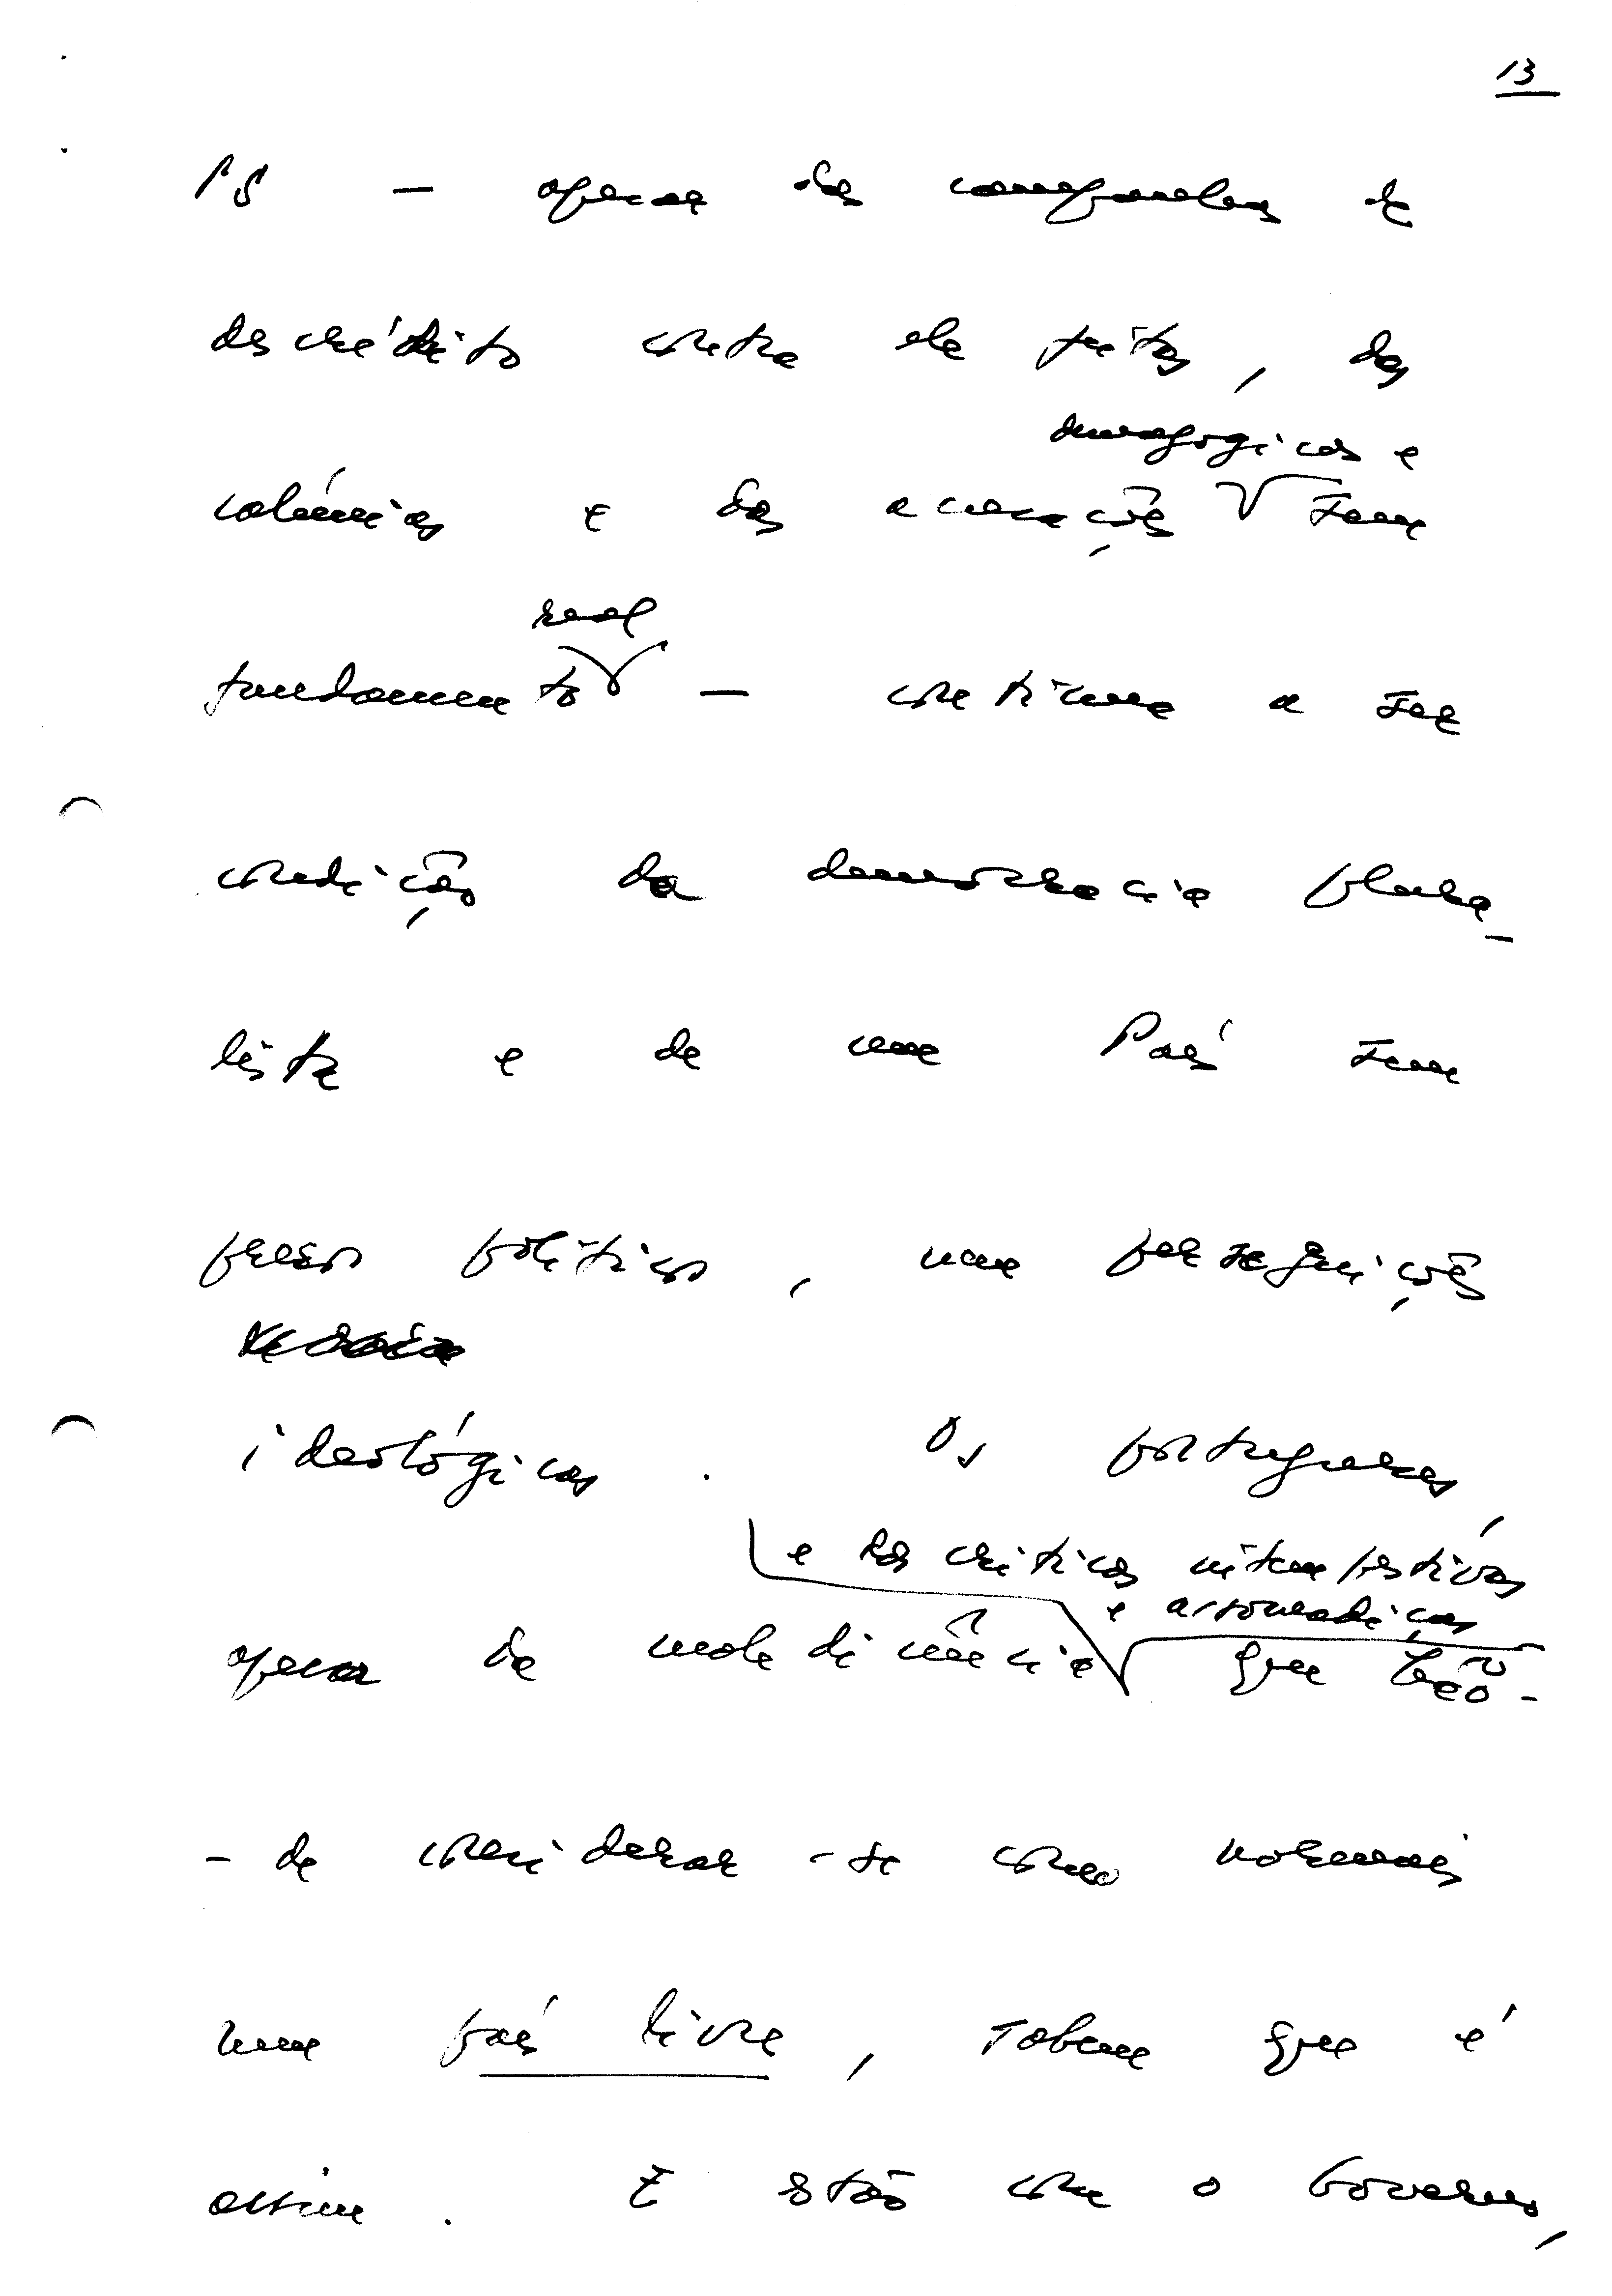 13
PS — apesar das campanhas de
descrédito contra ele feitas, das
demagógicas e
calúnias e das acusações sem
real
fundamento — continua a ser
condição da democracia plura-
lista e de um País sem
presos políticos, nem perseguições
ideológicas. Os portugueses,
e das críticas intempestivas
e
apesar da maledicência que hão-
-de considerar-se como normais
num país livre, sabem que é
assim. E estão com o Governo,